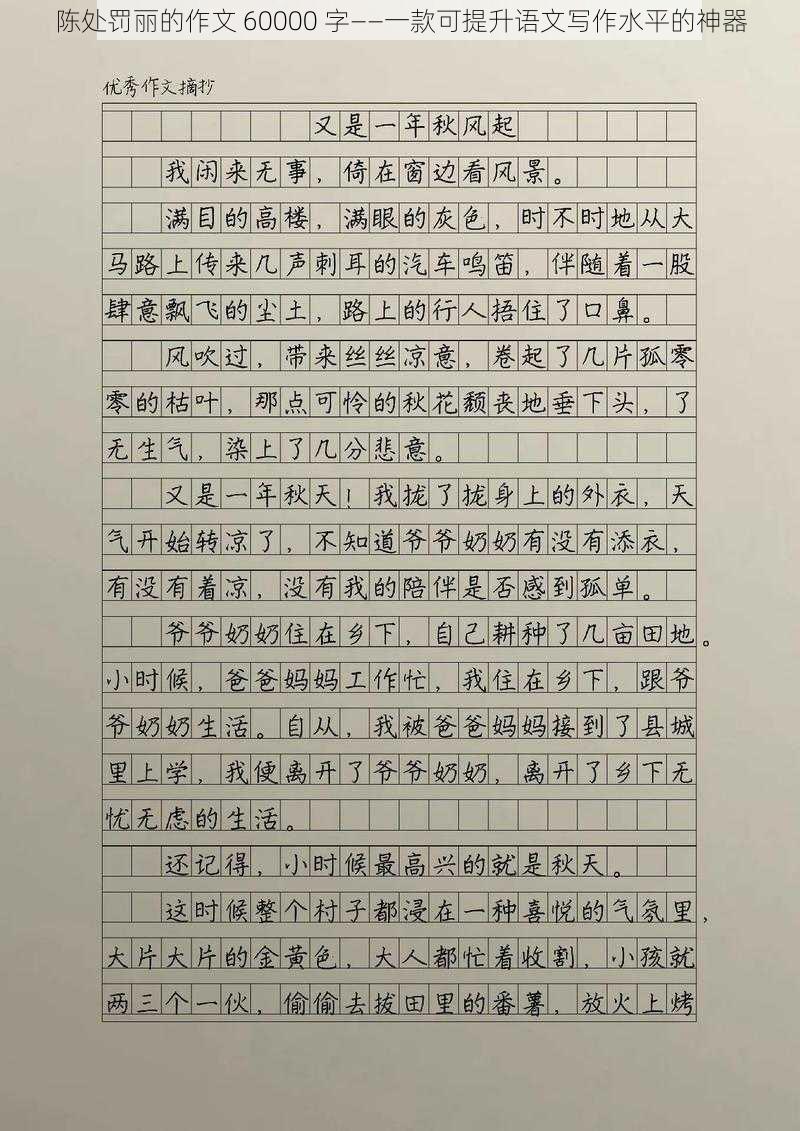 陈处罚丽的作文 60000 字——一款可提升语文写作水平的神器
优秀作文摘抄
又是一年秋风起
我闲来无事，倚在窗边看风景。
满目的高楼，满眼的灰色，时不时地从大
马路上传来几声刺耳的汽车鸣笛，伴随着一股
肆意飘飞的尘土，路上的行人捂住了口鼻。
风吹过，带来丝丝凉意，卷起了几片孤零
零的枯叶，那点可怜的秋花颓丧地垂下头，了
无生气，染上了几分悲意。
又是一年秋天！我拢了拢身上的外衣，天
气开始转凉了，不知道爷爷奶奶有没有添衣，
有没有着凉，没有我的陪伴是否感到孤单。
爷爷奶奶住在乡下，自己耕种了几亩田地。
小时候，爸爸妈妈工作忙，我住在乡下，跟爷
爷奶奶生活。自从，我被爸爸妈妈接到了县城
里上学，我便离开了爷爷奶奶，离开了乡下无
忧无虑的生活。
还记得，小时候最高兴的就是秋天。
这时候整个村子都浸在一种喜悦的气氛里，
大片大片的金黄色，大人都忙着收割，小孩就
两三个一伙，偷偷去拔田里的番薯，放火上烤